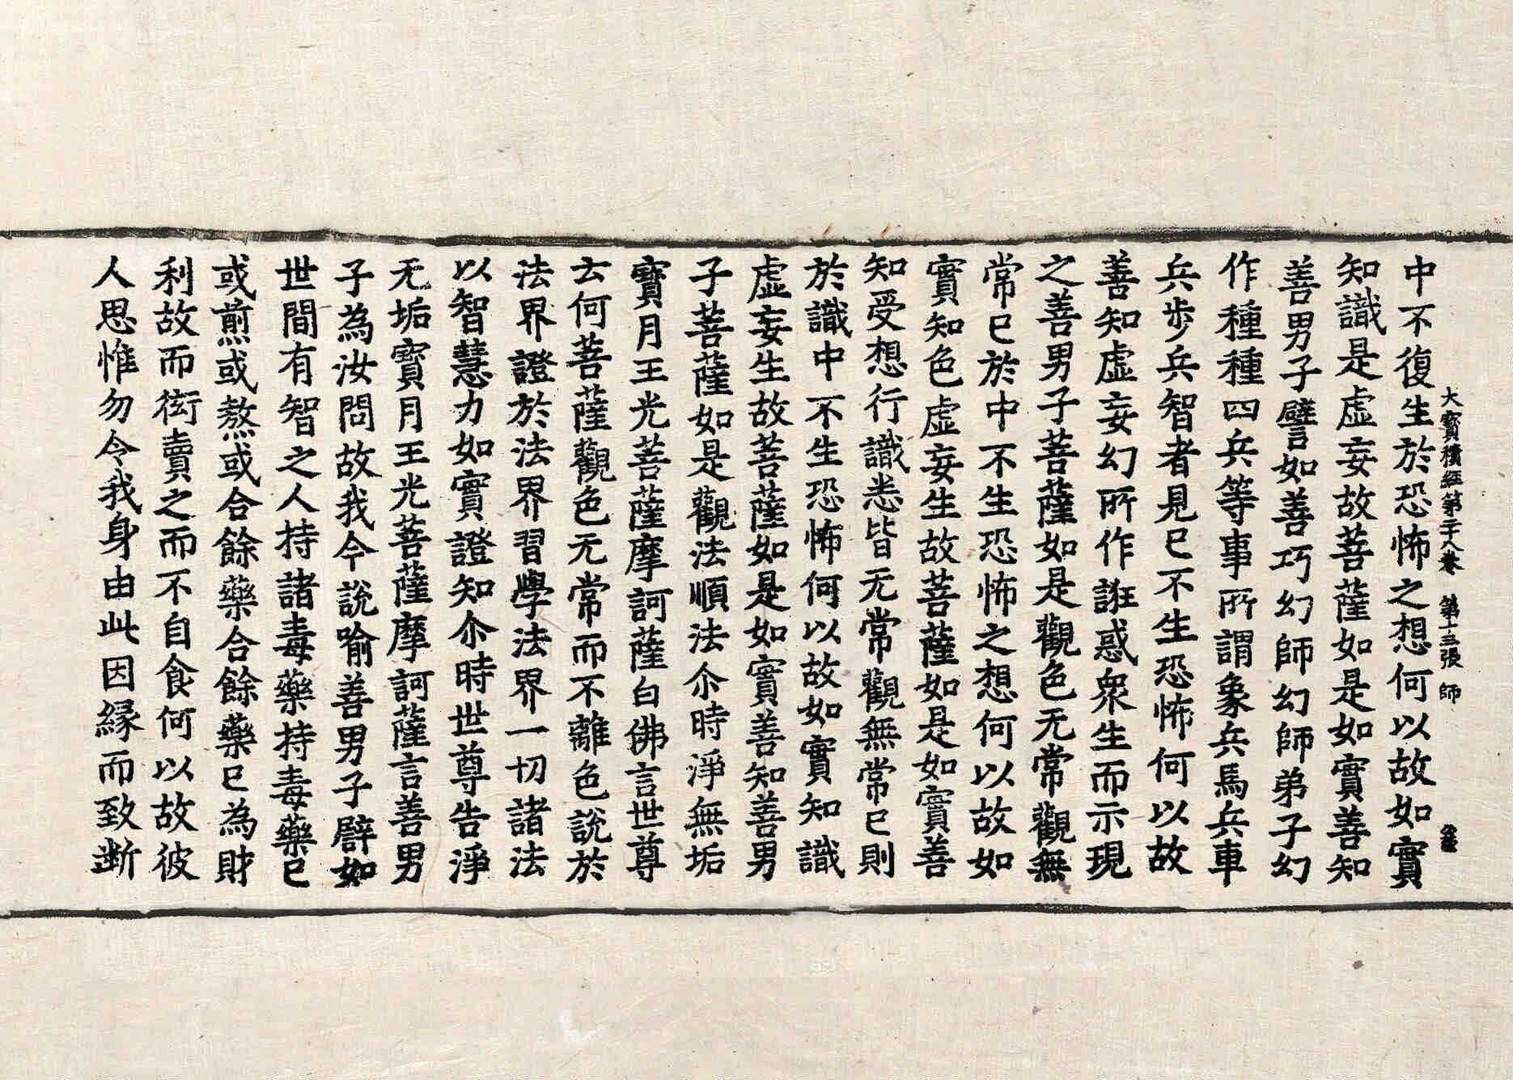 大寶積經第二十八卷 第十三張 師
中不復生於恐怖之想何以故如實
知識是虛妄故菩薩如是如實善知
善男子譬如善巧幻師幻師弟子幻
作種種四兵等事所謂象兵馬兵車
兵步兵智者見已不生恐怖何以故
善知虛妄幻所作誑惑眾生而示現
之善男子菩薩如是觀色无常觀無
常已於中不生恐怖之想何以故如
實知色虛妄生故菩薩如是如實善
知受想行識悉皆无常觀無常已則
於識中不生恐怖何以故如實知識
虛妄生故菩薩如是如實善知善男
子菩薩如是觀法順法尒時淨無垢
寶月王光菩薩摩訶薩白佛言世尊
云何菩薩觀色无常而不離色說於
法界證於法界習學法界一切諸法
以智慧力如實證知尒時世尊告淨
无垢寶月王光菩薩摩訶薩言善男
子為汝問故我今說喻善男子譬如
世間有智之人持諸毒藥持毒藥已
或煎或熬或合餘藥合餘藥已為財
利故而衒賣之而不自食何以故彼
人思惟勿令我身由此因緣而致断